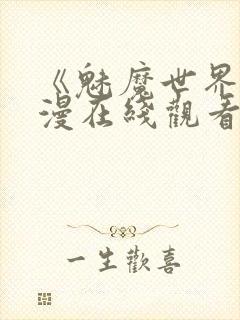 《魅魔世界
漫在綫觀看
一生歡喜